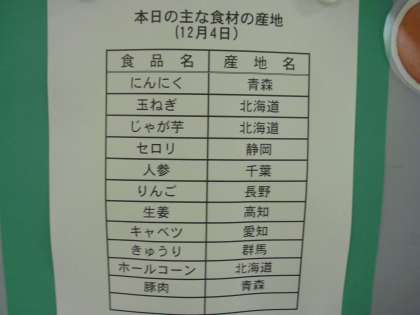 本日の主な食材の産地
(12月4日)
食品名 産地名
にんにく 青森
玉ねぎ 北海道
じゃが芋 北海道
セロリ 静岡
人参 千葉
りんご 長野
生姜 高知
キャベツ 愛知
きゅうり 群馬
ホールコーン 北海道
豚肉 青森